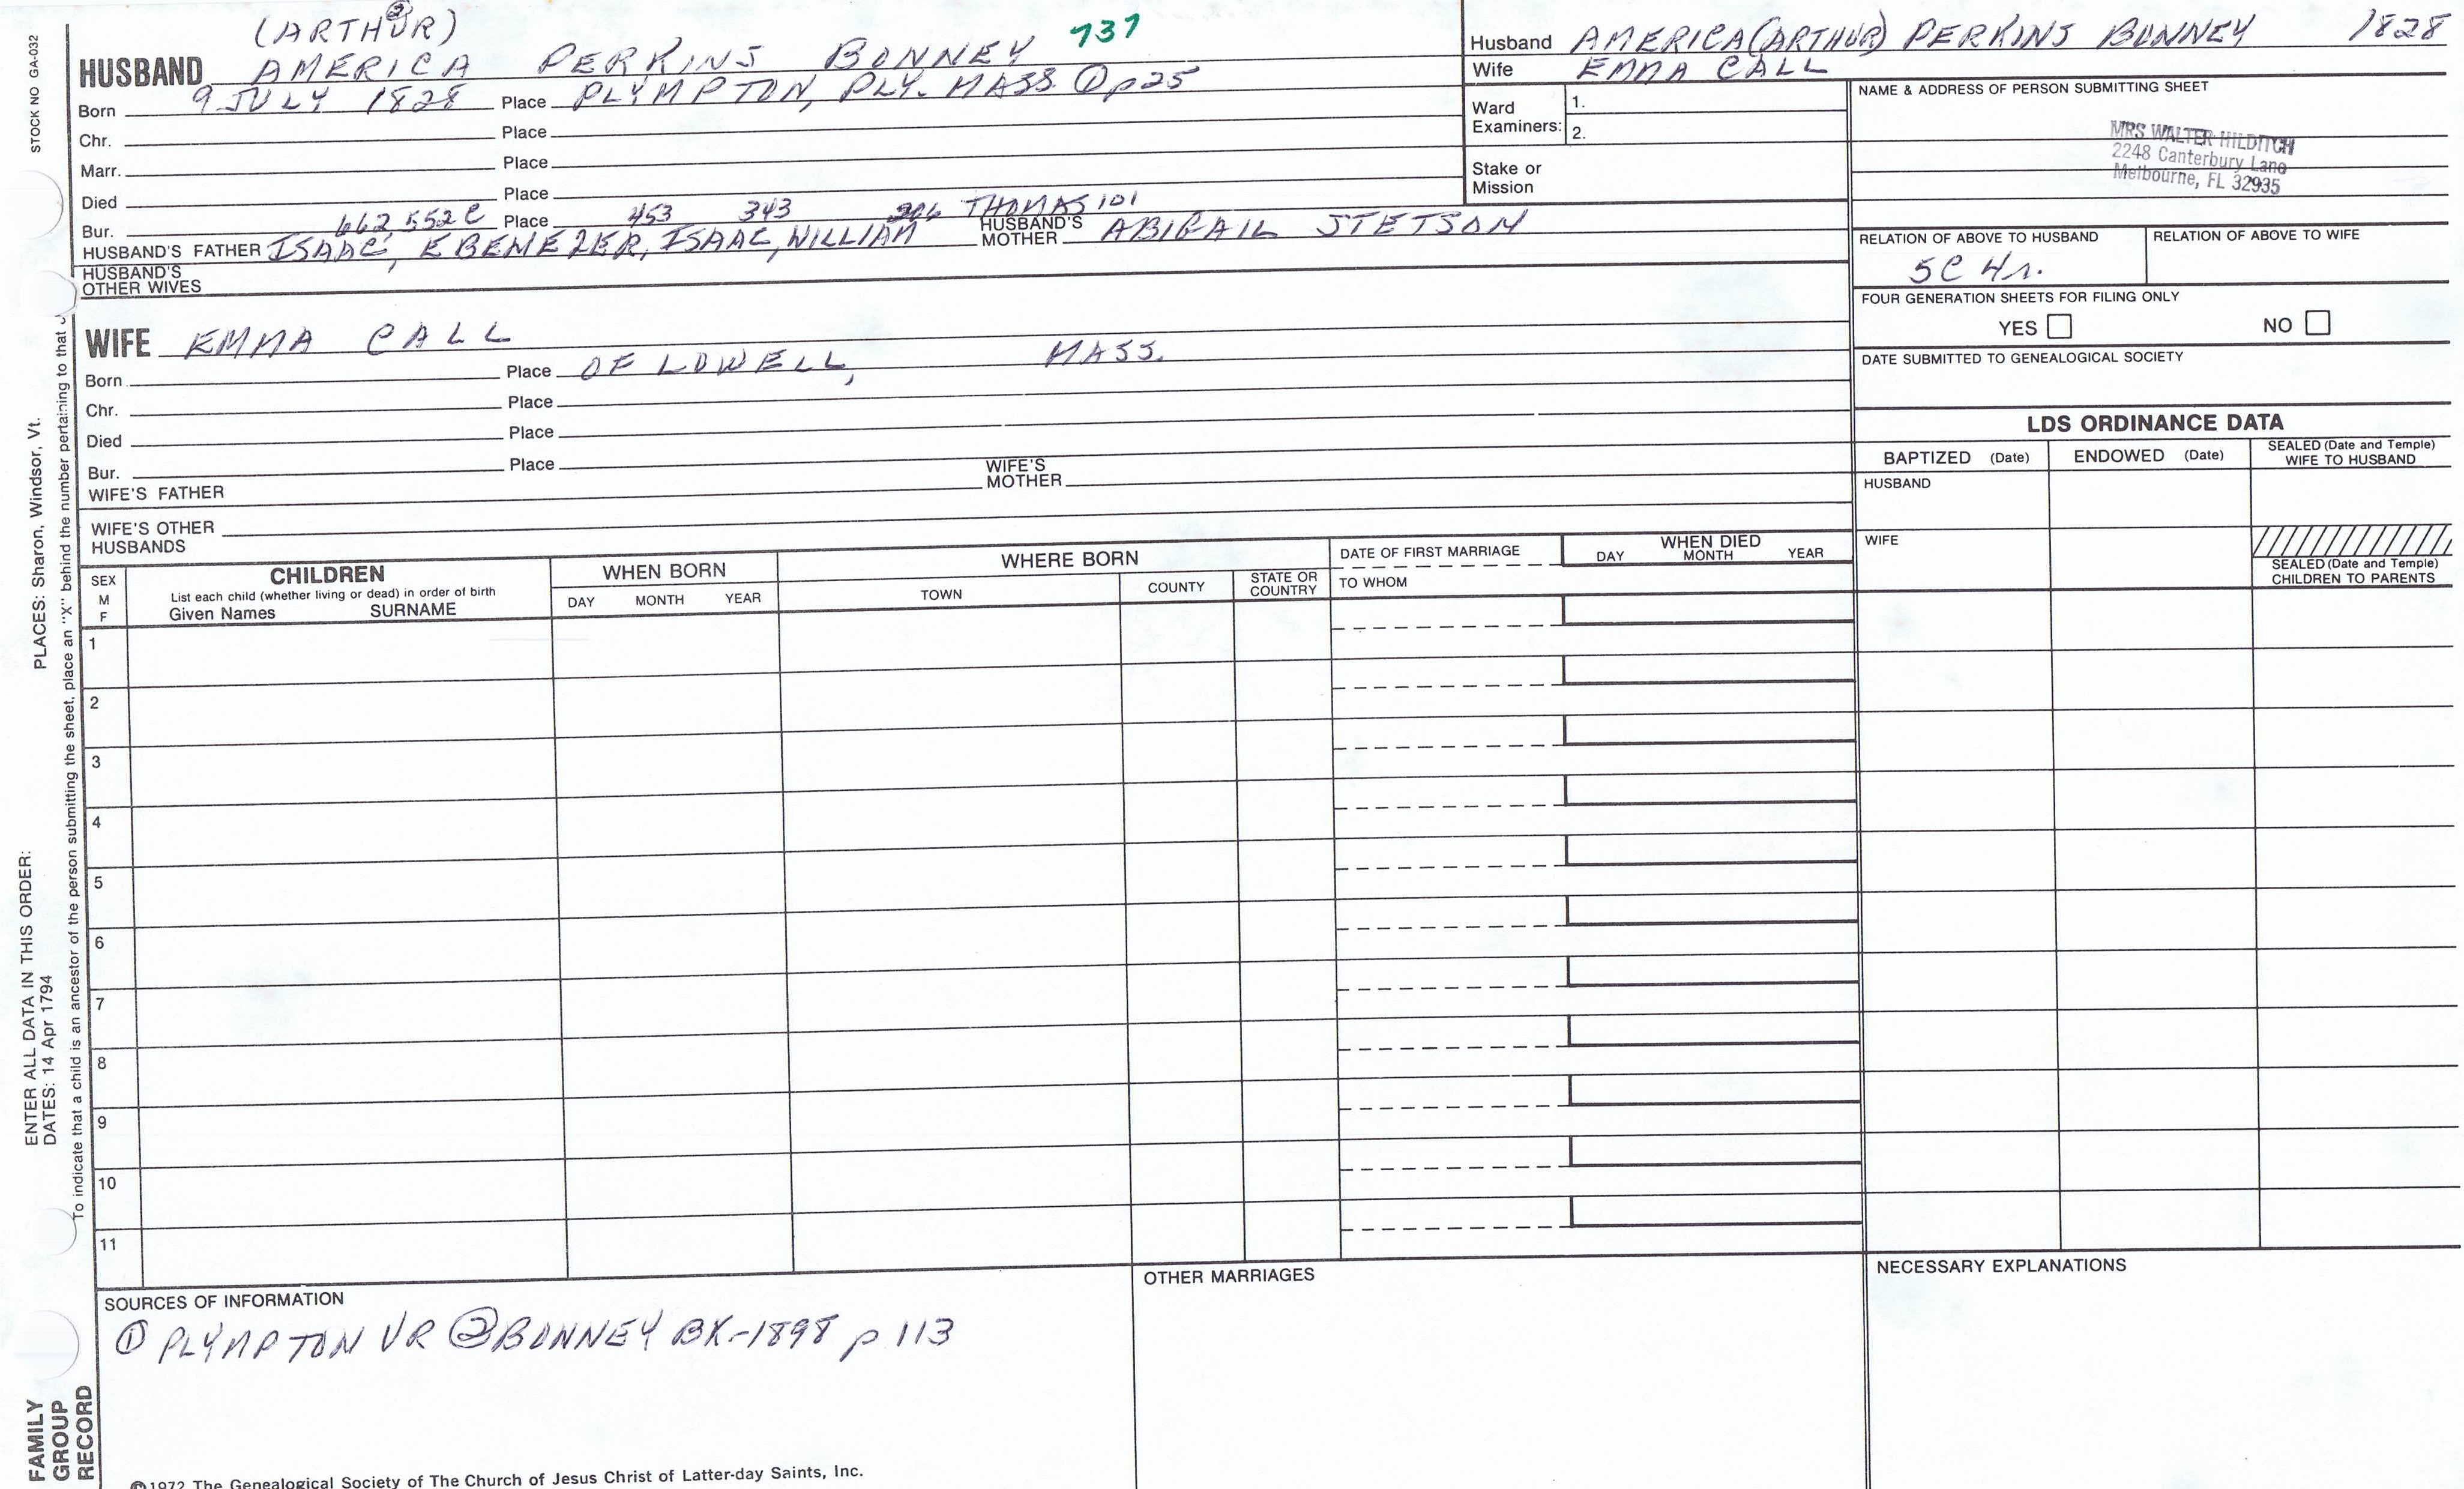 STOCK NO GA-032
PLACES: Sharon, Windsor, Vt.
ENTER ALL DATA IN THIS ORDER:
DATES: 14 Apr 1794
To indicate that a child is an ancestor of the person submitting the sheet, place an "X" behind the number pertaining to that
FAMILY
GROUP
RECORD
(ARTHUR) ②
737
HUSBAND AMERICA PERKINS BONNEY
Born 9 JULY 1828 Place PLYMPTON, PLY. MASS. ① p25
Chr. Place
Marr. Place
Died Place
Bur. 662, 552 C Place 453 343 206 THOMAS 101
HUSBAND'S FATHER ISAAC, EBENEZER, ISAAC, WILLIAM HUSBAND'S MOTHER ABIGAIL STETSON
HUSBAND'S
OTHER WIVES
WIFE EMMA CALL
Born Place OF LOWELL, MASS.
Chr. Place
Died Place
Bur. Place
WIFE'S FATHER WIFE'S MOTHER
WIFE'S OTHER
HUSBANDS
Husband AMERICA (ARTHUR) PERKINS BONNEY 1828
Wife EMMA CALL
Ward
Examiners:
1.
2.
Stake or
Mission
NAME & ADDRESS OF PERSON SUBMITTING SHEET
MRS WALTER HILDITCH
2248 Canterbury Lane
Melbourne, FL 32935
RELATION OF ABOVE TO HUSBAND RELATION OF ABOVE TO WIFE
5C 4r.
FOUR GENERATION SHEETS FOR FILING ONLY
YES NO
DATE SUBMITTED TO GENEALOGICAL SOCIETY
LDS ORDINANCE DATA
BAPTIZED (Date) ENDOWED (Date) SEALED (Date and Temple)
WIFE TO HUSBAND
HUSBAND
WIFE
SEALED (Date and Temple)
CHILDREN TO PARENTS
SEX
M
F
CHILDREN
List each child (whether living or dead) in order of birth
Given Names SURNAME
WHEN BORN
DAY MONTH YEAR
WHERE BORN
TOWN COUNTY STATE OR
COUNTRY
DATE OF FIRST MARRIAGE
TO WHOM
WHEN DIED
DAY MONTH YEAR
1
2
3
4
5
6
7
8
9
10
11
SOURCES OF INFORMATION
① PLYMPTON VR ② BONNEY BK-1898 p 113
OTHER MARRIAGES
NECESSARY EXPLANATIONS
©1972 The Genealogical Society of The Church of Jesus Christ of Latter-day Saints, Inc.